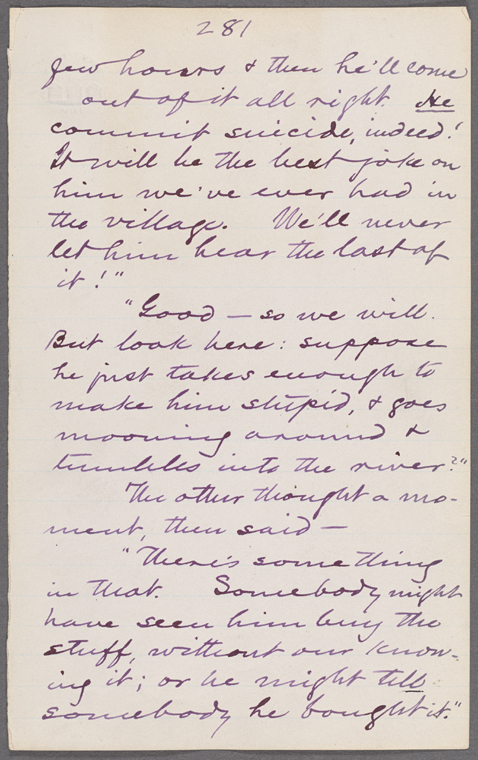 281
few hours & then he'll come
out of it all right. He
commit suicide, indeed!
It will be the best joke on
him we've ever had in
the village. We'll never
let him hear the last of
it!"
"Good — so we will.
But look here: suppose
he just takes enough to
make him stupid, & goes
mooning around &
tumbles into the river?"
The other thought a mo-
ment, then said —
"There's something
in that. Somebody might
have seen him buy the
stuff, without our know-
ing it; or he might tell
somebody he bought it."